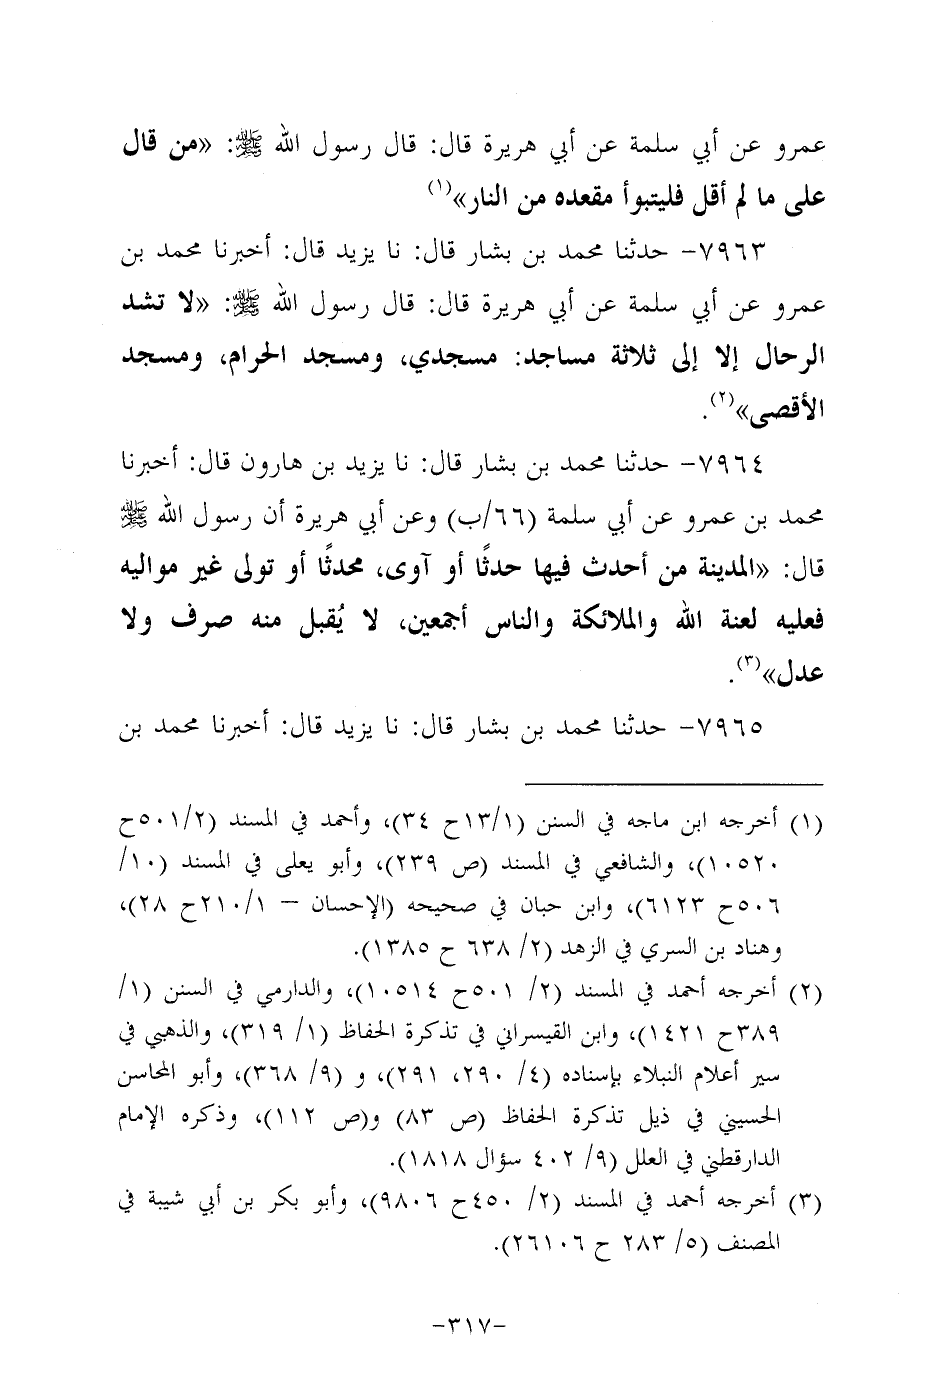 عمرو عن أبي سلمة عن أبي هريرة قال: قال رسول الله ﷺ: «من قال
على ما لم أقل فليتبوأ مقعده من النار»(١)
٧٩٦٣- حدثنا محمد بن بشار قال: نا يزيد قال: أخبرنا محمد بن
عمرو عن أبي سلمة عن أبي هريرة قال: قال رسول الله ﷺ: «لا تشد
الرحال إلا إلى ثلاثة مساجد: مسجدي، ومسجد الحرام، ومسجد
الأقصى»(٢).
٧٩٦٤- حدثنا محمد بن بشار قال: نا يزيد بن هارون قال: أخبرنا
محمد بن عمرو عن أبي سلمة (٦٦/ب) وعن أبي هريرة أن رسول الله ﷺ
قال: «المدينة من أحدث فيها حدثًا أو آوى، محدثًا أو تولى غير مواليه
فعليه لعنة الله والملائكة والناس أجمعين، لا يُقبل منه صرف ولا
عدل»(٣).
٧٩٦٥- حدثنا محمد بن بشار قال: نا يزيد قال: أخبرنا محمد بن
(١) أخرجه ابن ماجه في السنن (١٣/١ح ٣٤)، وأحمد في المسند (٥٠١/٢ح
١٠٥٢٠)، والشافعي في المسند (ص ٢٣٩)، وأبو يعلى في المسند (١٠/
٥٠٦ح ٦١٢٣)، وابن حبان في صحيحه (الإحسان – ٢١٠/١ح ٢٨)،
وهناد بن السري في الزهد (٢/ ٦٣٨ ح ١٣٨٥).
(٢) أخرجه أحمد في المسند (٢/ ٥٠١ح ١٠٥١٤)، والدارمي في السنن (١/
٣٨٩ح ١٤٢١)، وابن القيسراني في تذكرة الحفاظ (١/ ٣١٩)، والذهبي في
سير أعلام النبلاء بإسناده (٤/ ٢٩٠، ٢٩١)، و (٩/ ٣٦٨)، وأبو المحاسن
الحسيني في ذيل تذكرة الحفاظ (ص ٨٣) و(ص ١١٢)، وذكره الإمام
الدارقطني في العلل (٩/ ٤٠٢ سؤال ١٨١٨).
(٣) أخرجه أحمد في المسند (٢/ ٤٥٠ح ٩٨٠٦)، وأبو بكر بن أبي شيبة في
المصنف (٥/ ٢٨٣ ح ٢٦١٠٦).
-٣١٧-